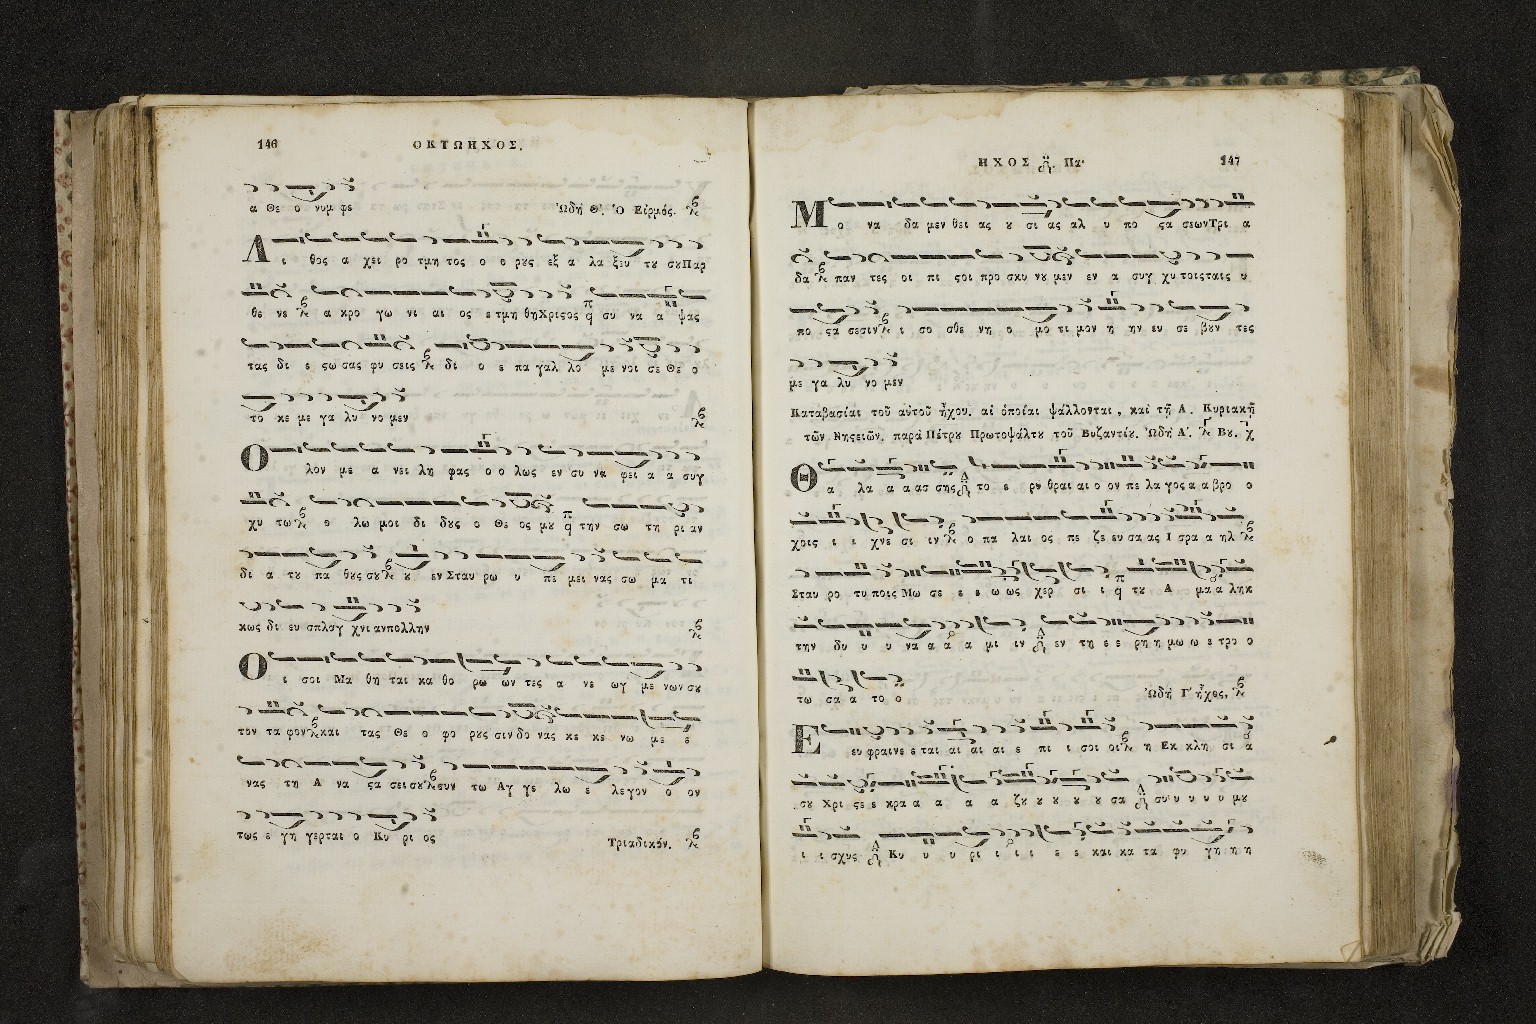 146
ΟΚΤΩΗΧΟΣ.
α Θε ο νυμ φε Ὠδὴ Θ'. Ὁ Εἱρμός.
Λι θος α χει ρο τμη τος ο ρους εξ α λα ξευ του σου Παρ
θε νε α κρο γω νι αι ος ε τμη θη Χριςος συ να α ψας
τας δι ε ςω σας φυ σεις δι ο ε πα γαλ λο με νοι σε Θε ο
το κε με γα λυ νο μεν
Ολον με α νει λη φας ο ο λως εν συ να φει α α συγ
χυ τω ο λω μοι δι δους ο Θε ος μου την σω τη ρι αν
δι α του πα θους σου ου εν Σταυ ρω υ πε μει νας σω μα τι
κως δι ευ σπλαγ χνι αν πολλην
Οι σοι Μα θη ται κα θο ρω ων τες α νε ωγ με νων σου
τον τα φον και τας Θε ο φο ρους σιν δο νας κε κε νω με ε
νας τη Α να ςα σει σου λευν τω Αγ γε λω ε λε γον ο ον
τως ε γη γερται ο Κυ ρι ος Τριαδικόν.
ΗΧΟΣ Πα
147
Μο να δα μεν θει ας ου σι ας αλ υ πο ςα σεων Τρι α
δα παν τες οι πι ςοι προ σκυ νου μεν εν α συγ χυ τοις ταις υ
πο ςα σεσιν ι σο σθε νη ο μο τι μον η ην ευ σε βουν τες
με γα λυ νο μεν
Καταβασίαι τοῦ αὐτοῦ ἤχου. αἱ ὁποίαι ψάλλονται, καὶ τῇ Α. Κυριακῇ
τῶν Νηςειῶν. παρὰ Πέτρου Πρωτοψάλτου τοῦ Βυζαντίου. Ὠδὴ Α'. Βου. χ
Θα λα α α ασ σης το ε ρυ θραι αι ο ον πε λα γος α α βρο ο
χοις ι ι χνε σι ιν ο πα λαι ος πε ζε ευ σα ας Ι σρα α ηλ
Σταυ ρο τυ ποις Μω σε ε ε ω ως χερ σι ι του Α μα α ληκ
την δυ υ υ να α α α μι ιν εν τη ε ε ρη η μω ω ε τρο ο
τω σα α το ο Ὠδὴ Γ' ἦχος,
Ευ φραινε ε ται αι αι αι ε πι ι σοι οι η Εκ κλη σι α
σου Χρι ςε ε κρα α α α α ζου ου ου ου ου σα συ υ υ υ υ μου
ι ι σχυς Κυ υ υ ρι ι ι ι ε ε και κα τα φυ γη η η